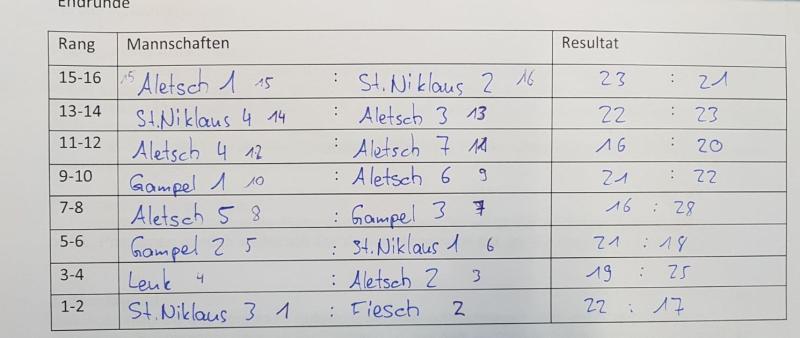 Endrunde
Rang Mannschaften Resultat
15-16 15 Aletsch 1 15 : St.Niklaus 2 16 23 : 21
13-14 St.Niklaus 4 14 : Aletsch 3 13 22 : 23
11-12 Aletsch 4 12 : Aletsch 7 11 16 : 20
9-10 Gampel 1 10 : Aletsch 6 9 21 : 22
7-8 Aletsch 5 8 : Gampel 3 7 16 : 28
5-6 Gampel 2 5 : St.Niklaus 1 6 21 : 18
3-4 Leuk 4 : Aletsch 2 3 19 : 25
1-2 St.Niklaus 3 1 : Fiesch 2 22 : 17